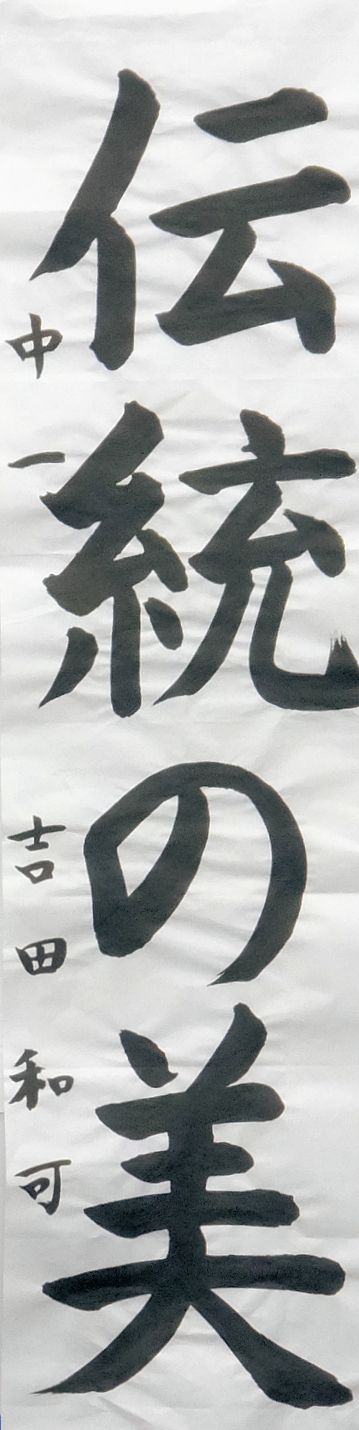 伝統の美
中一 吉田和可